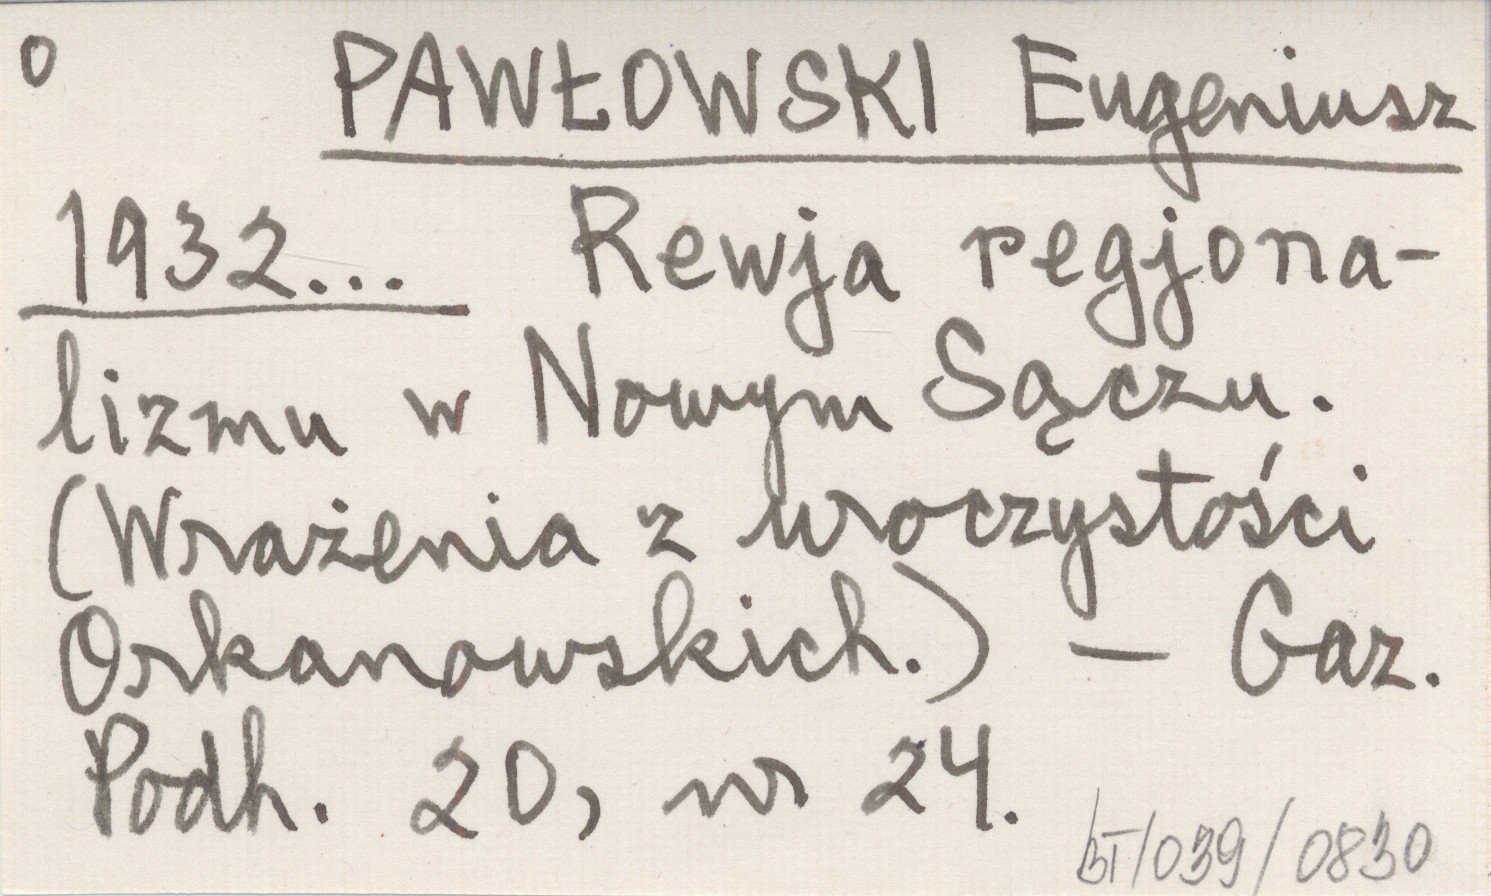 0 PAWŁOWSKI Eugeniusz
1932... Rewja regjona-
lizmu w Nowym Sączu.
(Wrażenia z uroczystości
Orkanowskich.) — Gaz.
Podh. 20, nr 24.
BT/039/0830